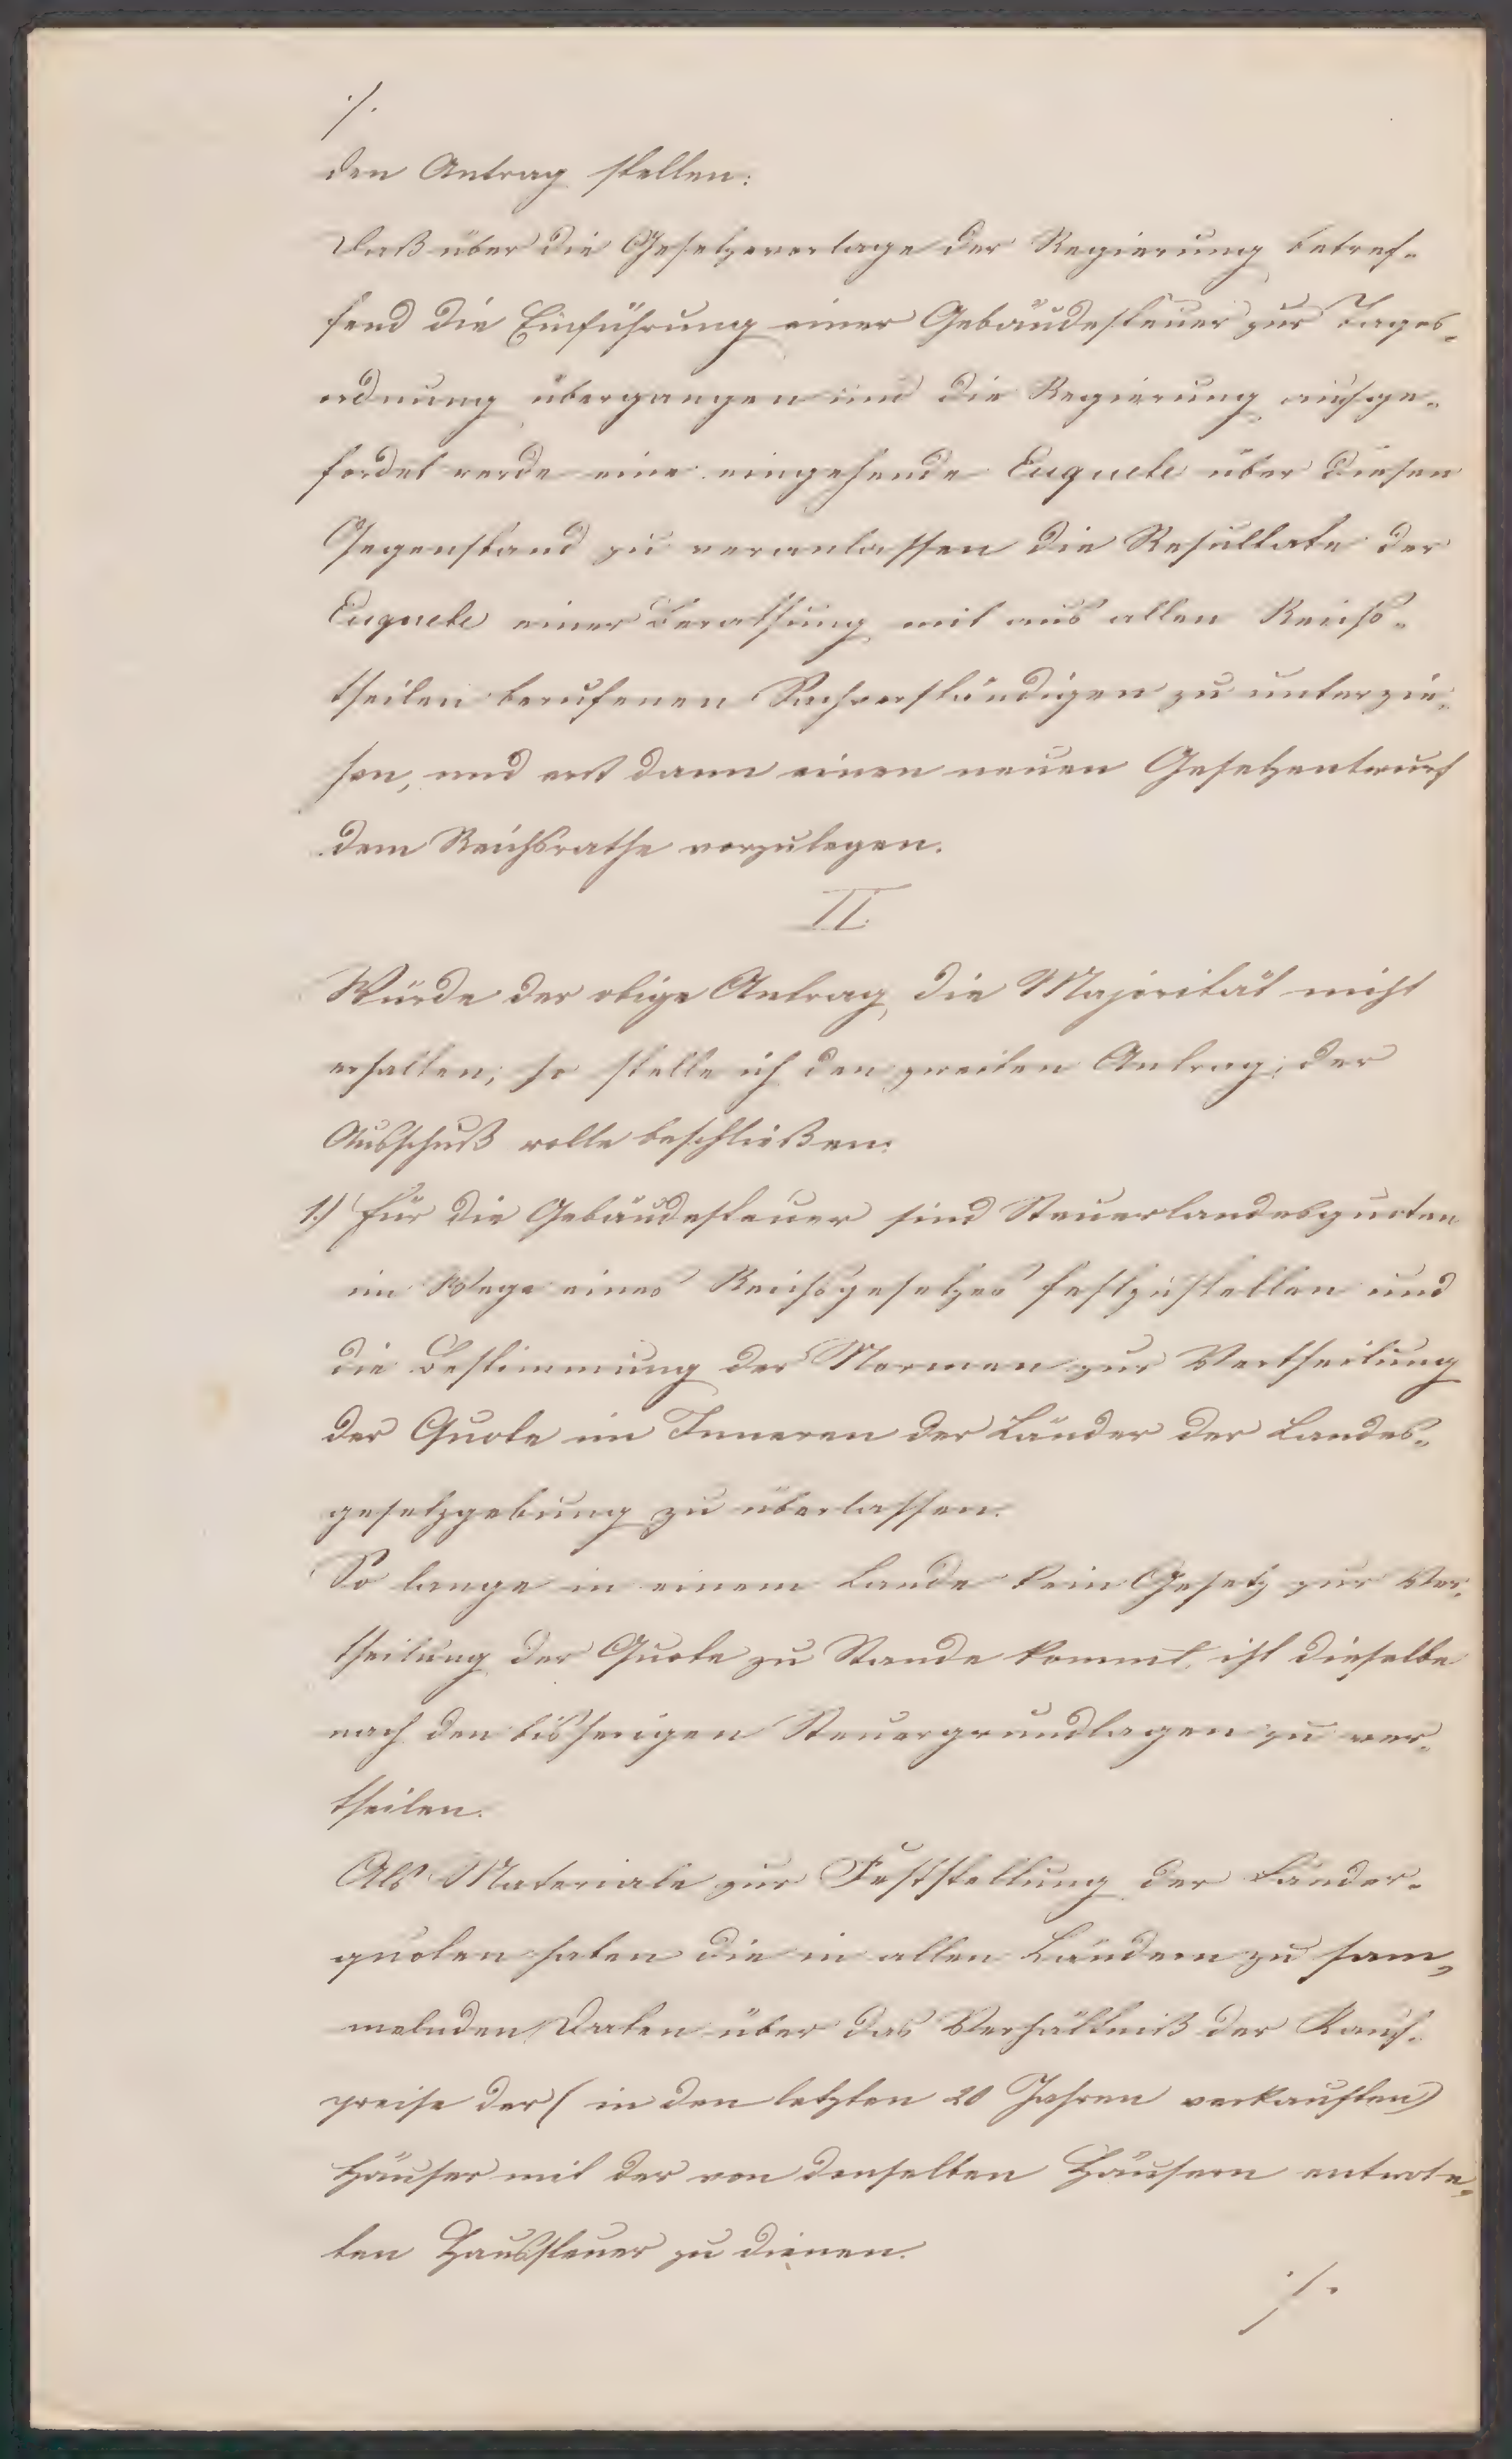 ./.
den Antrag stellen:
Daß über die Gesetzesvorlage der Regierung betref-
fend die Einführung einer Gebäudesteuer zur Tages-
ordnung übergangen und die Regierung aufge-
fordet werde eine eingehende Enquete über diesen
Gegenstand zu veranlassen die Resultate der
Enquete einer Berathung mit aus allen Reichs-
theilen berufenen Sachverständigen zu unterzie-
hen, und erst dann einen neuen Gesetzentwurf
dem Reichsrathe vorzulegen.
II.
Würde der obige Antrag die Majorität nicht
erhalten, so stelle ich den zweiten Antrag: der
Ausschuß wolle beschließen:
1.) Für die Gebäudesteuer sind Steuerlandesquoten
im Wege eines Reichsgesetzes festzustellen und
die Bestimmung der Normen zur Vertheilung
der Quote im Inneren der Länder der Landes-
gesetzgebung zu überlassen.
So lange in einem Lande kein Gesetz zur Ver-
theilung der Quote zu Stande kommt, ist dieselbe
nach den bisherigen Steuergrundlagen zu ver-
theilen.
Als Materiale zur Feststellung der Länder-
quoten haben die in allen Ländern zu sam-
melnden Daten über das Verhältniß der Kauf-
preise der (in den letzten 20 Jahren verkauften)
Häuser mit der von denselben Häusern entrote-
ten Haussteuer zu dienen.
./.